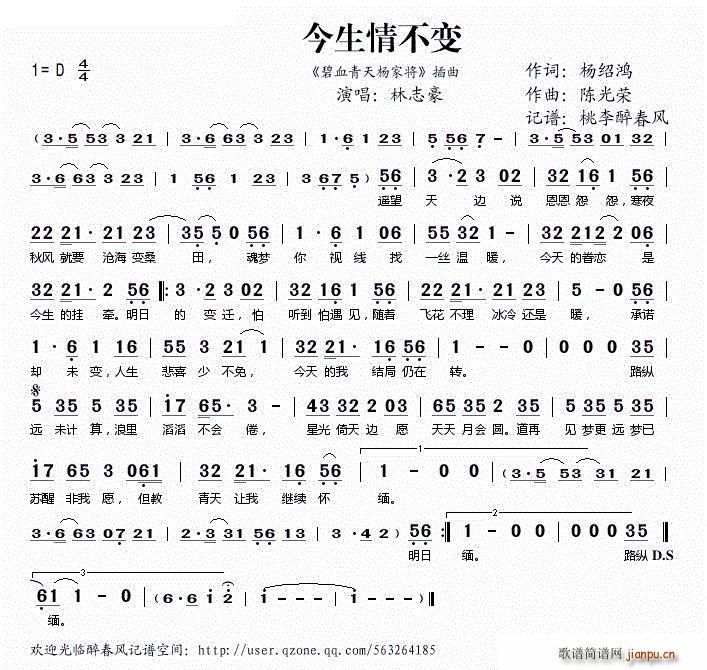 今生情不变
1=D 4/4 《碧血青天杨家将》插曲 作词：杨绍鸿
演唱：林志豪 作曲：陈光荣
记谱：桃李醉春风
(3·5 53 3 21 | 3·6 63 3 23 | 1·6 1 23 | 5 56 7 - | 3·5 53 01 32
3·6 63 3 23 | 1 56 1 23 | 3 67 5) 56 | 3·2 3 02 | 32 16·1 56 |
遥望 天 边 说 恩恩 怨 怨，寒夜
22 21·21 23 | 35 5 0 56 | 1·6 1 06 | 55 32 1 - | 32 212 2 06 |
秋风 就要 沧海 变桑 田， 魂梦 你 视 线 找 一丝 温 暖， 今天 的眷恋 是
32 21·2 56 ‖: 3·2 3 02 | 32 16·1 56 | 22 21·21 23 | 5 - 0 56 |
今生 的挂 牵。明日 的 变 迁，怕 听到 怕遇 见，随着 飞花 不理 冰冷 还是 暖， 承诺
1·6 1 16 | 55 3 21 1 | 32 21·16 56 | 1 - 0 0 | 0 0 0 35 |
却 未 变，人生 悲喜 少 不免， 今天 的我 结局 仍在 转。 路纵
5 35 5 35 | i7 65·3 - | 43 32 2 03 | 35 32 21 35 | 5 35 5 35 |
远 未计 算，浪里 滔滔 不会 倦， 星光 倚天 边 愿 天天 月会 圆。道再 见 梦更 远 梦已
i7 65 3 061 | 32 21·16 56 | 1 - 0 0 | (3·5 53 31 21 |
苏醒 非我 愿，但教 青天 让我 继续 怀 缅。
3·6 63 07 21 | 2·3 31 56 13 | 3·4 2) 56 :‖ 1 - 0 0 | 0 0 0 35 ‖
明日 缅。 路纵 D.S
61 1 - 0 | (6·6 i 2 | i - - - | i - - -) ‖
缅。
欢迎光临醉春风记谱空间：http://user.qzone.qq.com/563264185
歌谱简谱网
jianpu.cn